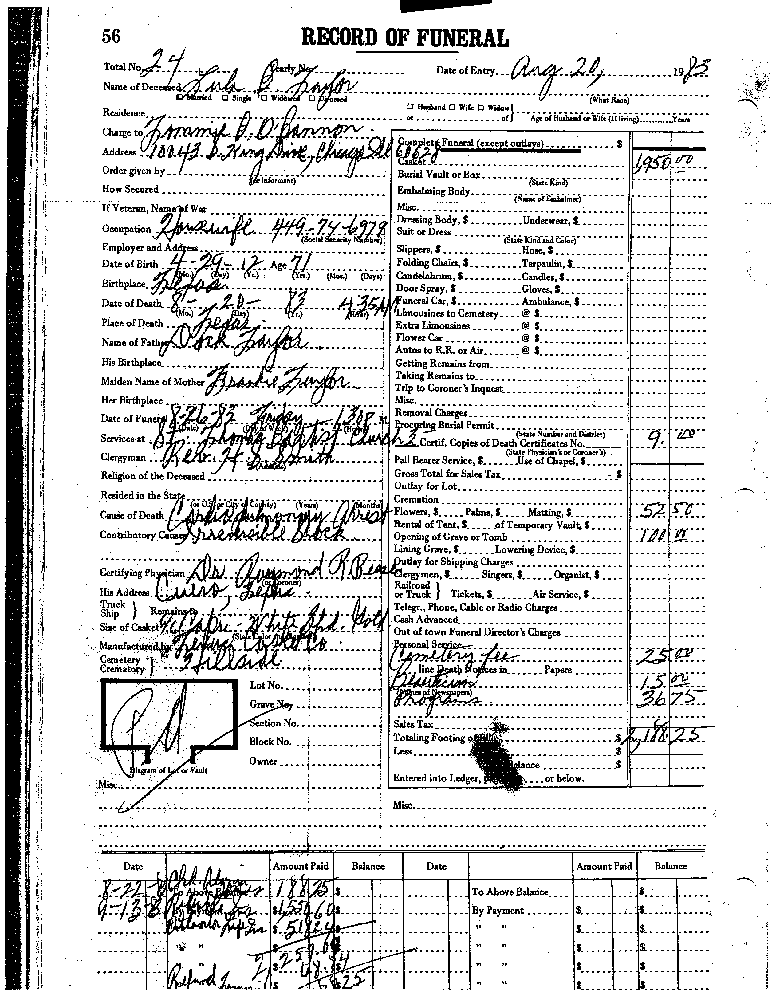 56
RECORD OF FUNERAL
Total No. 24 Yearly No.
Date of Entry Aug 20, 1983
Name of Deceased Lula B Taylor
☐ Married ☐ Single ☐ Widowed ☐ Divorced
(What Race)
Residence
☐ Husband ☐ Wife ☐ Widow
or of Age of Husband or Wife (if living) Years
Charge to Tommye D. O'Bannon
Address 10043 S. King Drive, Chicago Ill 60628
Order given by
(or Informant)
How Secured
If Veteran, Name of War
Occupation Housewife 449-74-6978
(Social Security Number)
Employer and Address
Date of Birth 4-29-12 Age 71
(Mo.) (Day) (Yr.) (Yrs.) (Mos.) (Days)
Birthplace Texas
Date of Death 8-20-83 4:35 AM
(Mo.) (Day) (Yr.) (Hour)
Place of Death Texas
Name of Father Dock Taylor
His Birthplace
Maiden Name of Mother Frankie Taylor
Her Birthplace
Date of Funeral 8-26-83 Friday
Services at Baptist Church
Clergyman Rev. H. S. Smith
Religion of the Deceased
Resided in the State
(or City or County) (Years) (Months)
Cause of Death Cardiopulmonary Arrest
Contributory Causes Irreversible Shock
Certifying Physician Dr. Raymond R
(or Coroner)
His Address Cuero, Texas
Truck
Ship } Remains to
Size of Casket White Gold
Manufactured by Casket Co
Cemetery
Crematory } Hillside
Lot No.
Grave No.
Section No.
Block No.
Owner
Diagram of Lot or Vault
Pd
Misc.
Complete Funeral (except outlays) $
Casket 1950 00
Burial Vault or Box
(State Kind)
Embalming Body
(Name of Embalmer)
Misc.
Dressing Body, $ Underwear, $
Suit or Dress
(State Kind and Color)
Slippers, $ Hose, $
Folding Chairs, $ Tarpaulin, $
Candelabrum, $ Candles, $
Door Spray, $ Gloves, $
Funeral Car, $ Ambulance, $
Limousines to Cemetery @ $
Extra Limousines @ $
Flower Car @ $
Autos to R.R. or Air @ $
Getting Remains from
Taking Remains to
Trip to Coroner's Inquest
Misc.
Removal Charges
Procuring Burial Permit
(State Number and District)
3 Certif. Copies of Death Certificates No. 9.00
(State Physician's or Coroner's)
Pall Bearer Service, $ Use of Chapel, $
Gross Total for Sales Tax $
Outlay for Lot
Cremation
Flowers, $ Palms, $ Matting, $ 52 50
Rental of Tent, $ of Temporary Vault, $
Opening of Grave or Tomb 100 00
Lining Grave, $ Lowering Device, $
Outlay for Shipping Charges
Clergymen, $ Singers, $ Organist, $
Railroad
or Truck } Tickets, $ Air Service, $
Telegr., Phone, Cable or Radio Charges
Cash Advanced
Out of town Funeral Director's Charges
Personal Service
Cemetery fee 25 00
line Death Notices in Papers
Beautician 15 00
(Names of Newspapers)
Programs 36 75
Sales Tax
Totaling Footing of $ 2,188 25
Less
Balance $
Entered into Ledger, or below.
Misc.
Date Amount Paid Balance Date Amount Paid Balance
8-22-8 188 25 $ To Above Balance $
9-13-8 $ 1550 60 $ By Payment $ $
Ins $ 518 24 $ " " $ $
" " $ " " $ $
Refund